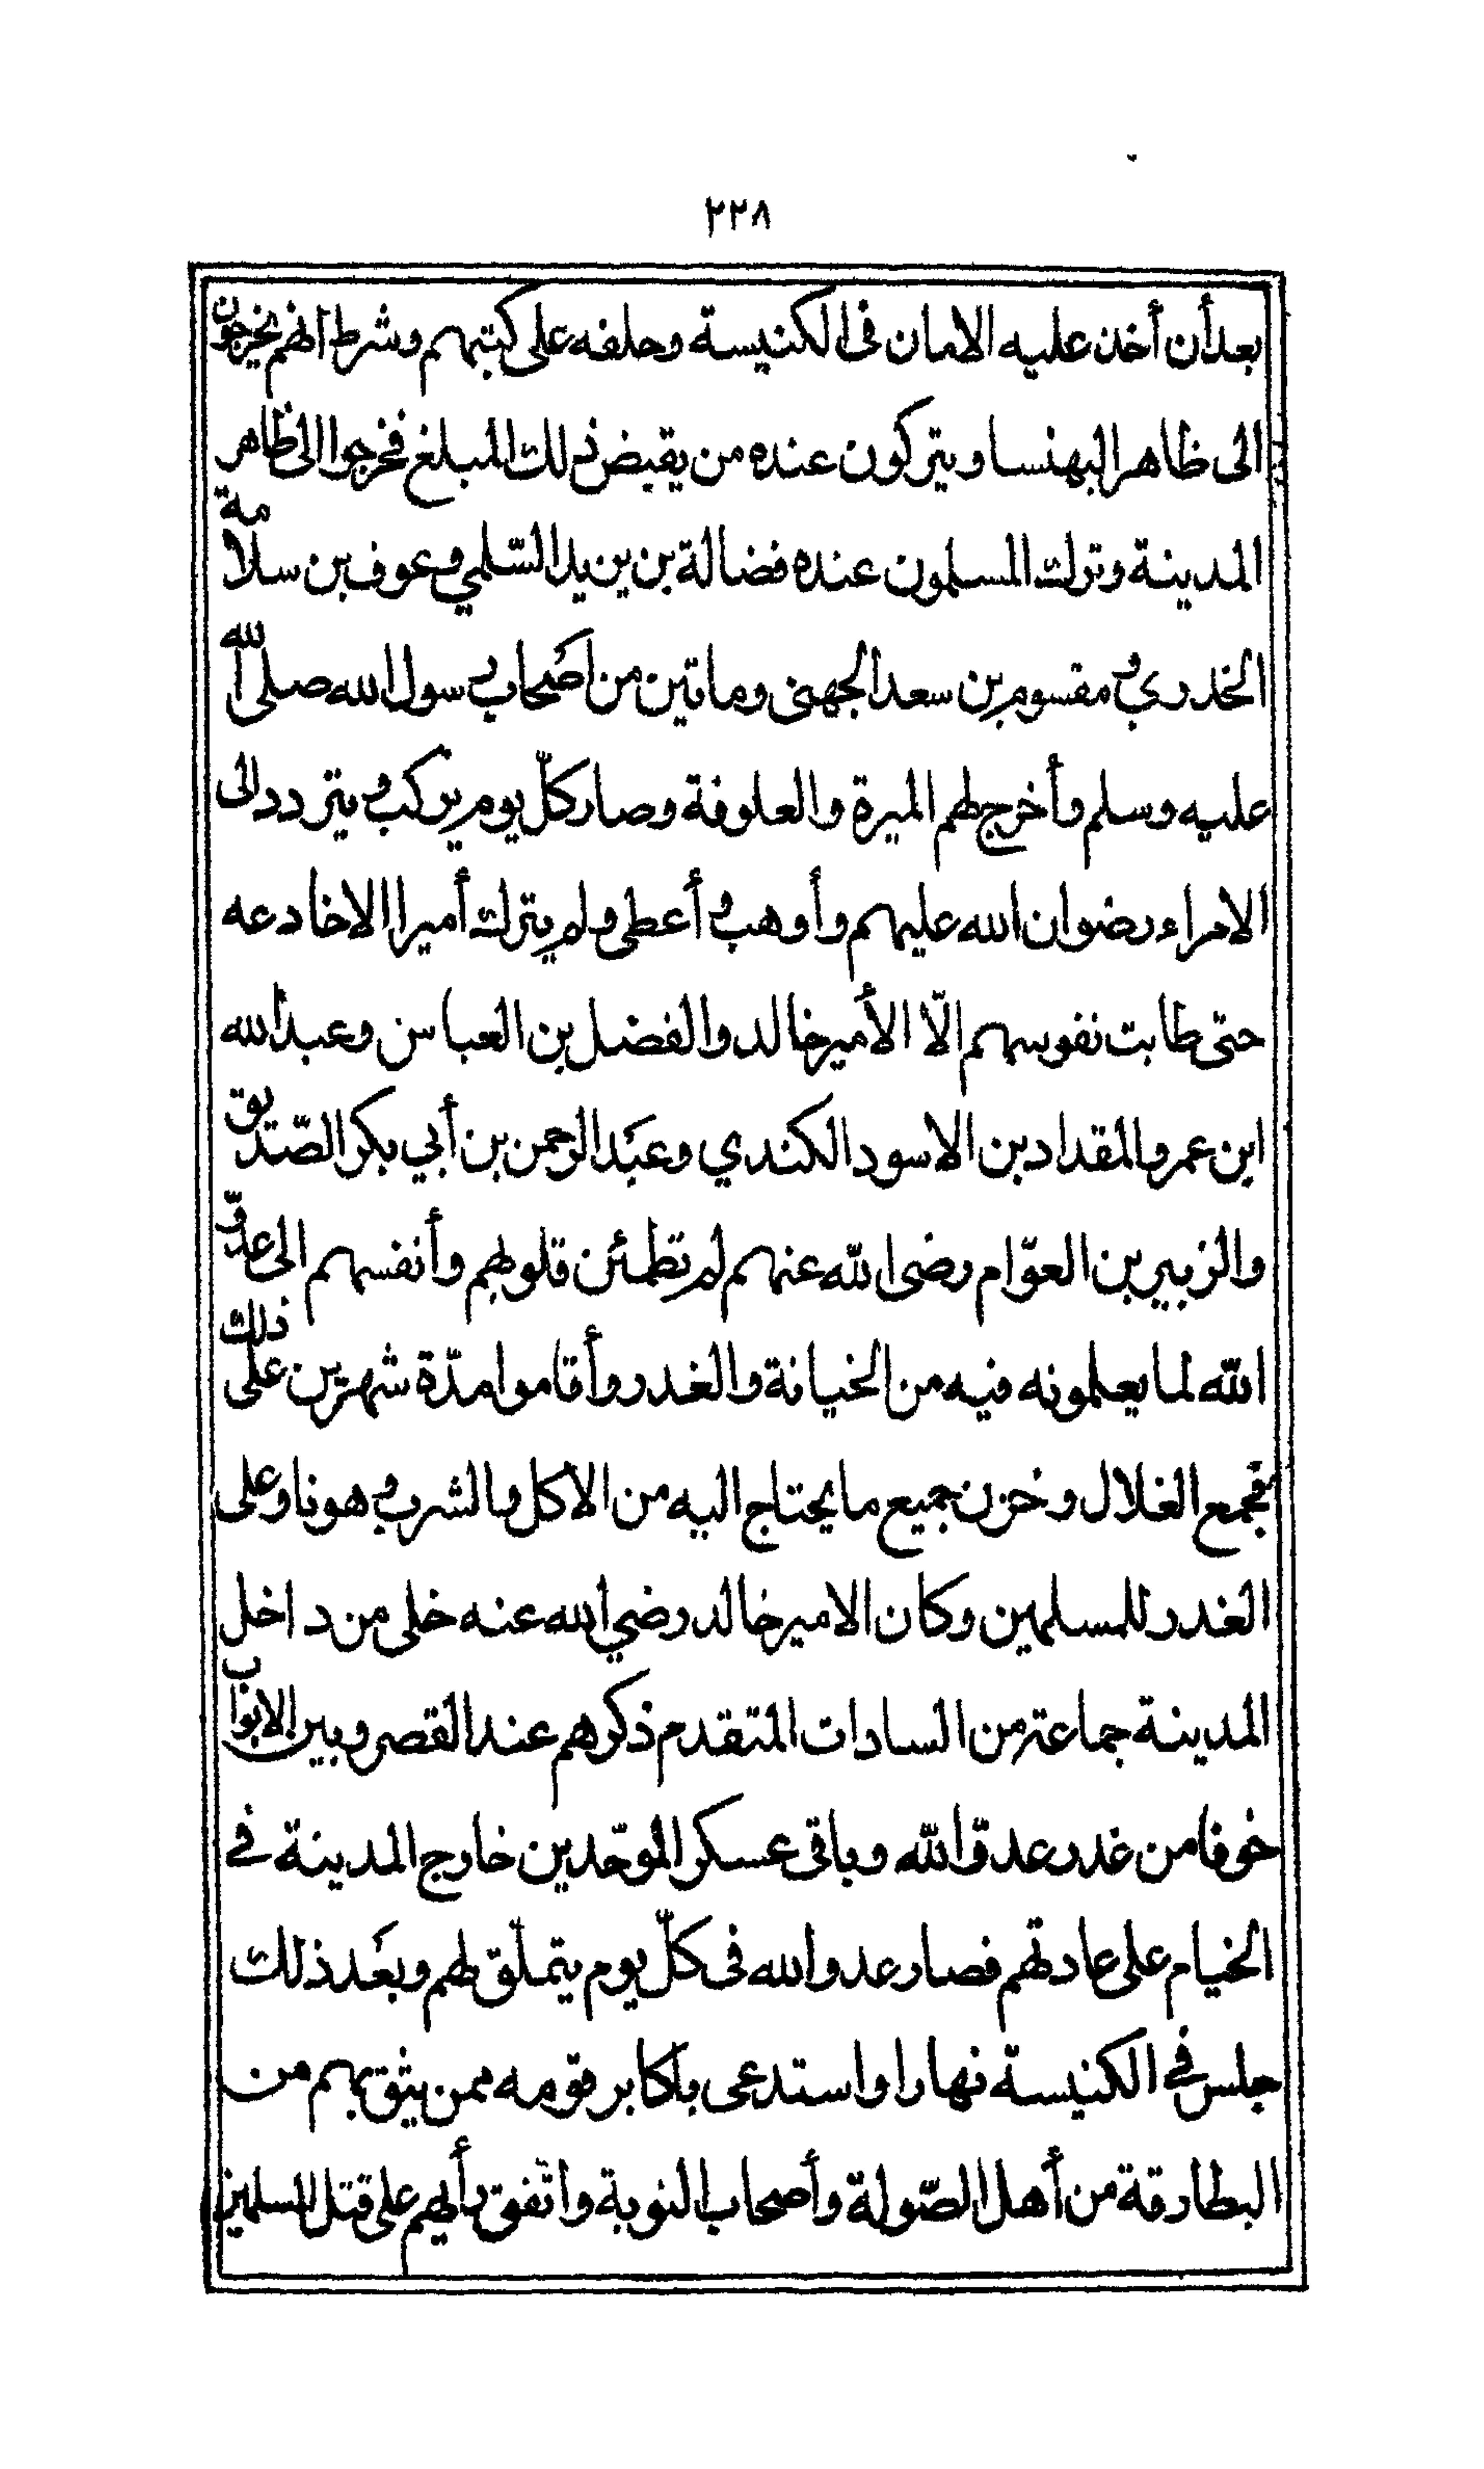 ٢٢٨
بعد أن أخذ عليه الامان فى الكنيسة وحلفه على كتبهم وشرط انهم يخرجون
الى ظاهر البهنسا ويتركون عنده من يقبض ذلك المبلغ فخرجوا الى ظاهر
المدينة وترك المسلمون عنده فضالة بن يزيد السّلمي وعوف بن سلامة
الخدري ومقسوم بن سعد الجهنى وماتين من اصحاب رسول الله صلى الله
عليه وسلم وأخرج لهم الميرة والعلوفة وصار كلّ يوم يركب ويتردد الى
الامراء رضوان الله عليهم وأوهب وأعطى ولم يترك أميرا الا خادعه
حتى طابت نفوسهم الّا الأمير خالد والفضل بن العباس وعبد الله
ابن عمر والمقداد بن الاسود الكندي وعبد الرحمن بن أبي بكر الصّديق
والزبير بن العوّام رضى الله عنهم لم تطمئن قلوبهم وأنفسهم الى عدوّ
الله لما يعلمونه فيه من الخيانة والغدر وأقاموا مدّة شهرين على ذلك
فجمع الغلال وخزن جميع ما يحتاج اليه من الاكل والشرب هونا وعلى
الغدر للمسلمين وكان الامير خالد رضي الله عنه خلى من داخل
المدينة جماعة من السادات المتقدم ذكرهم عند القصر وبين الابواب
خوفا من غدر عدوّ الله وباقى عسكر الموحّدين خارج المدينة في
الخيام على عادتهم فصار عدو الله فى كلّ يوم يتملّق لهم وبعد ذلك
جلس في الكنيسة نهارا واستدعى باكابر قومه ممن يثق بهم من
البطارقة من أهل الصّولة وأصحاب النوبة واتّفق رأيهم على قتل المسلمين